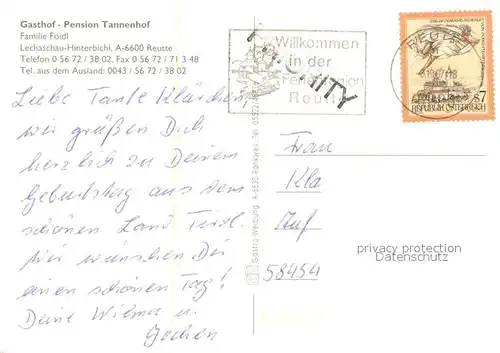 Gasthof - Pension Tannenhof
Familie Foidl
Lechaschau-Hinterbichl, A-6600 Reutte
Telefon 0 56 72 / 38 02, Fax 0 56 72 / 71 3 48
Tel. aus dem Ausland: 0043 / 56 72 / 38 02
Liebe Tante Klärchen,
wir grüßen Dich
herzlich zu Deinem
Geburtstag aus dem
schönen Land Tirol.
Wir wünschen Dir
einen schönen Tag!
Deine Wilma u.
Jochen
Willkommen
in der
Ferienregion
Reutte
PRIORITY
REUTTE
S7
REPUBLIK ÖSTERREICH
Gastro-Werbung, A-6830 Rankweil, Tel. 05522
Frau
Kla
Auf
58454
privacy protection
Datenschutz